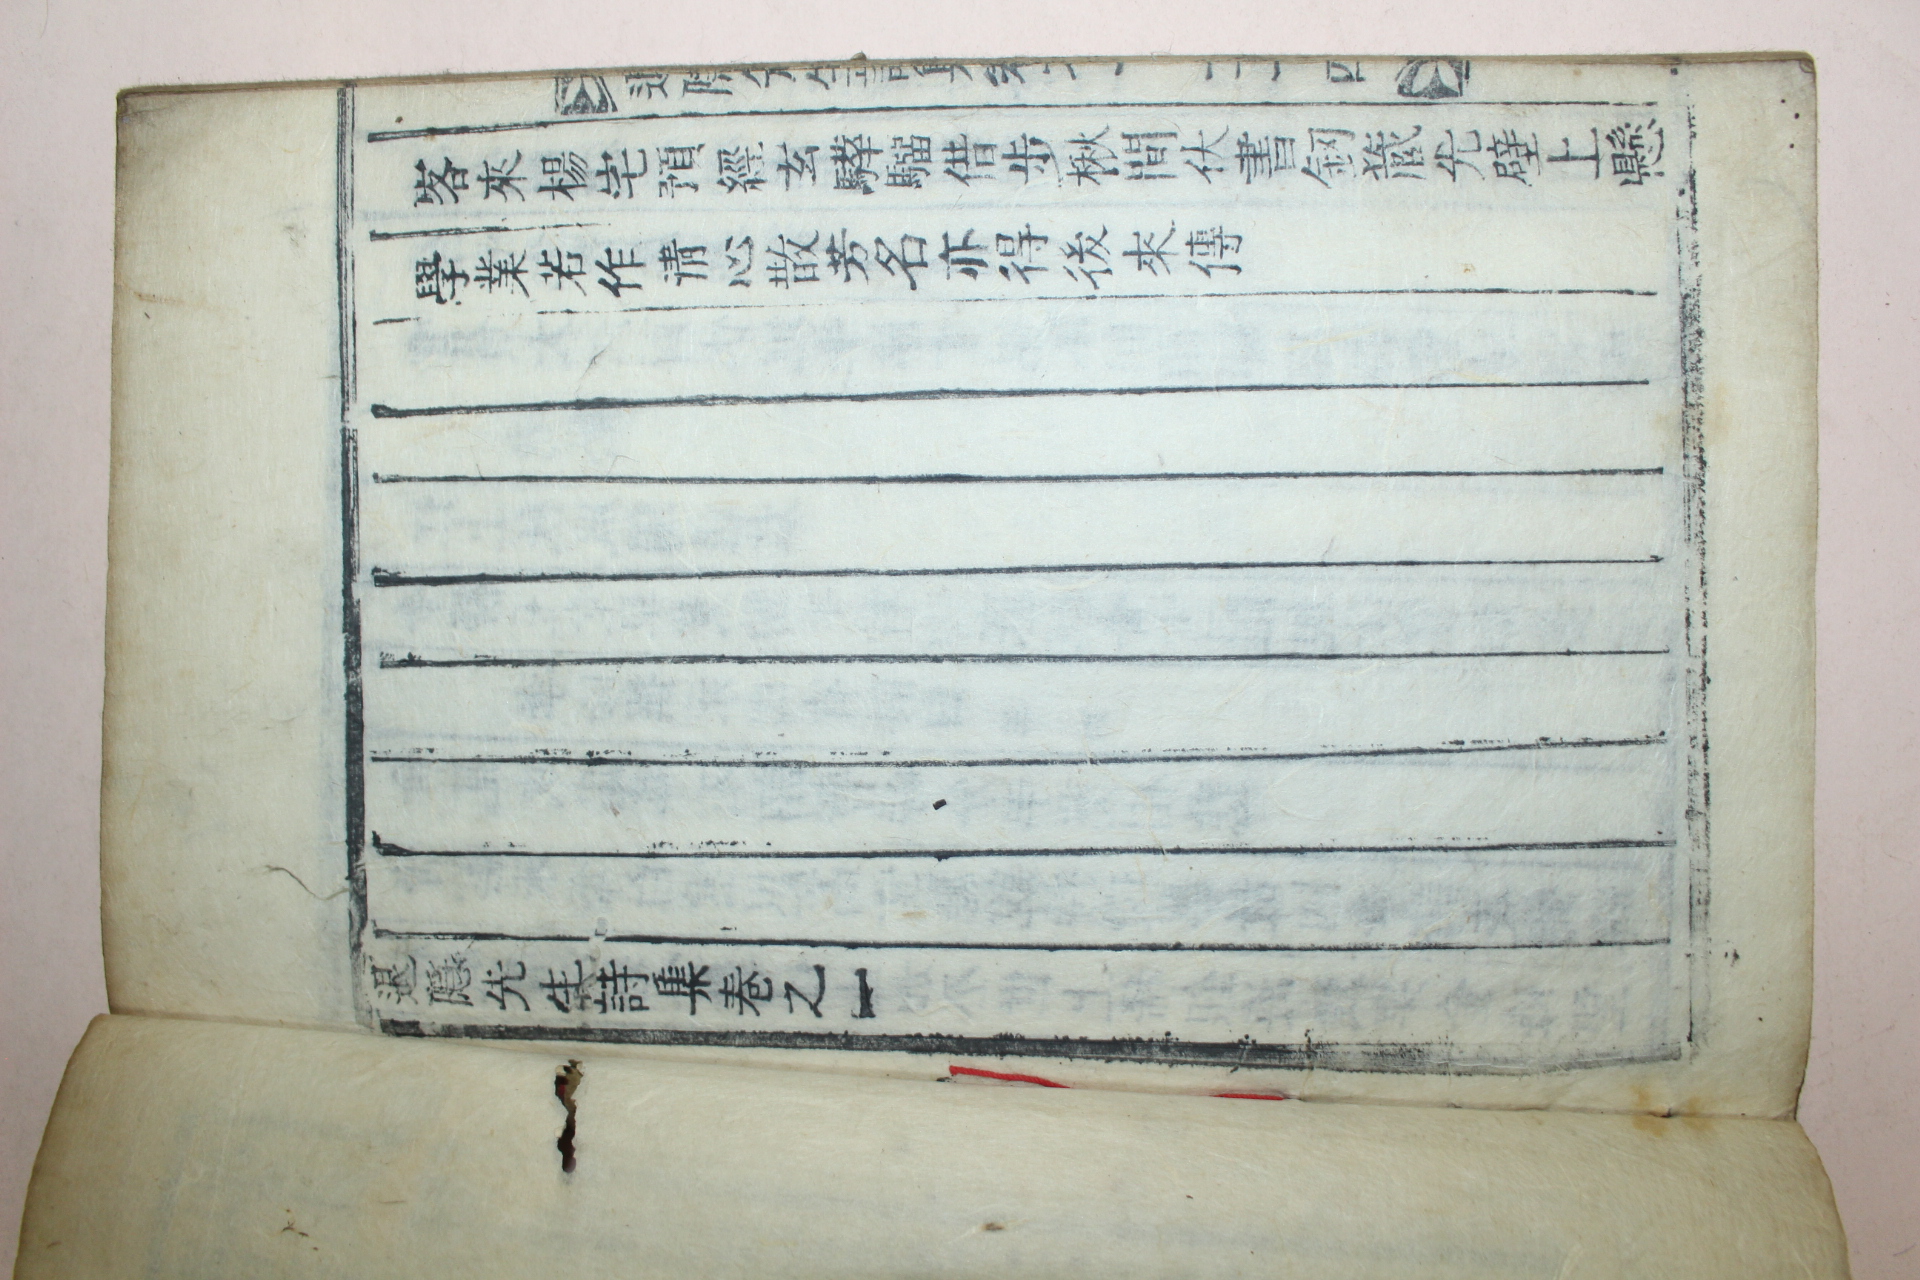 退隱先生詩集卷之一 二十四
客來楊宅預經玄驊騮借步楸間伏書釰藏先壁上懸
學業若作淸心散芳名亦得後來傳
退隱先生詩集卷之一